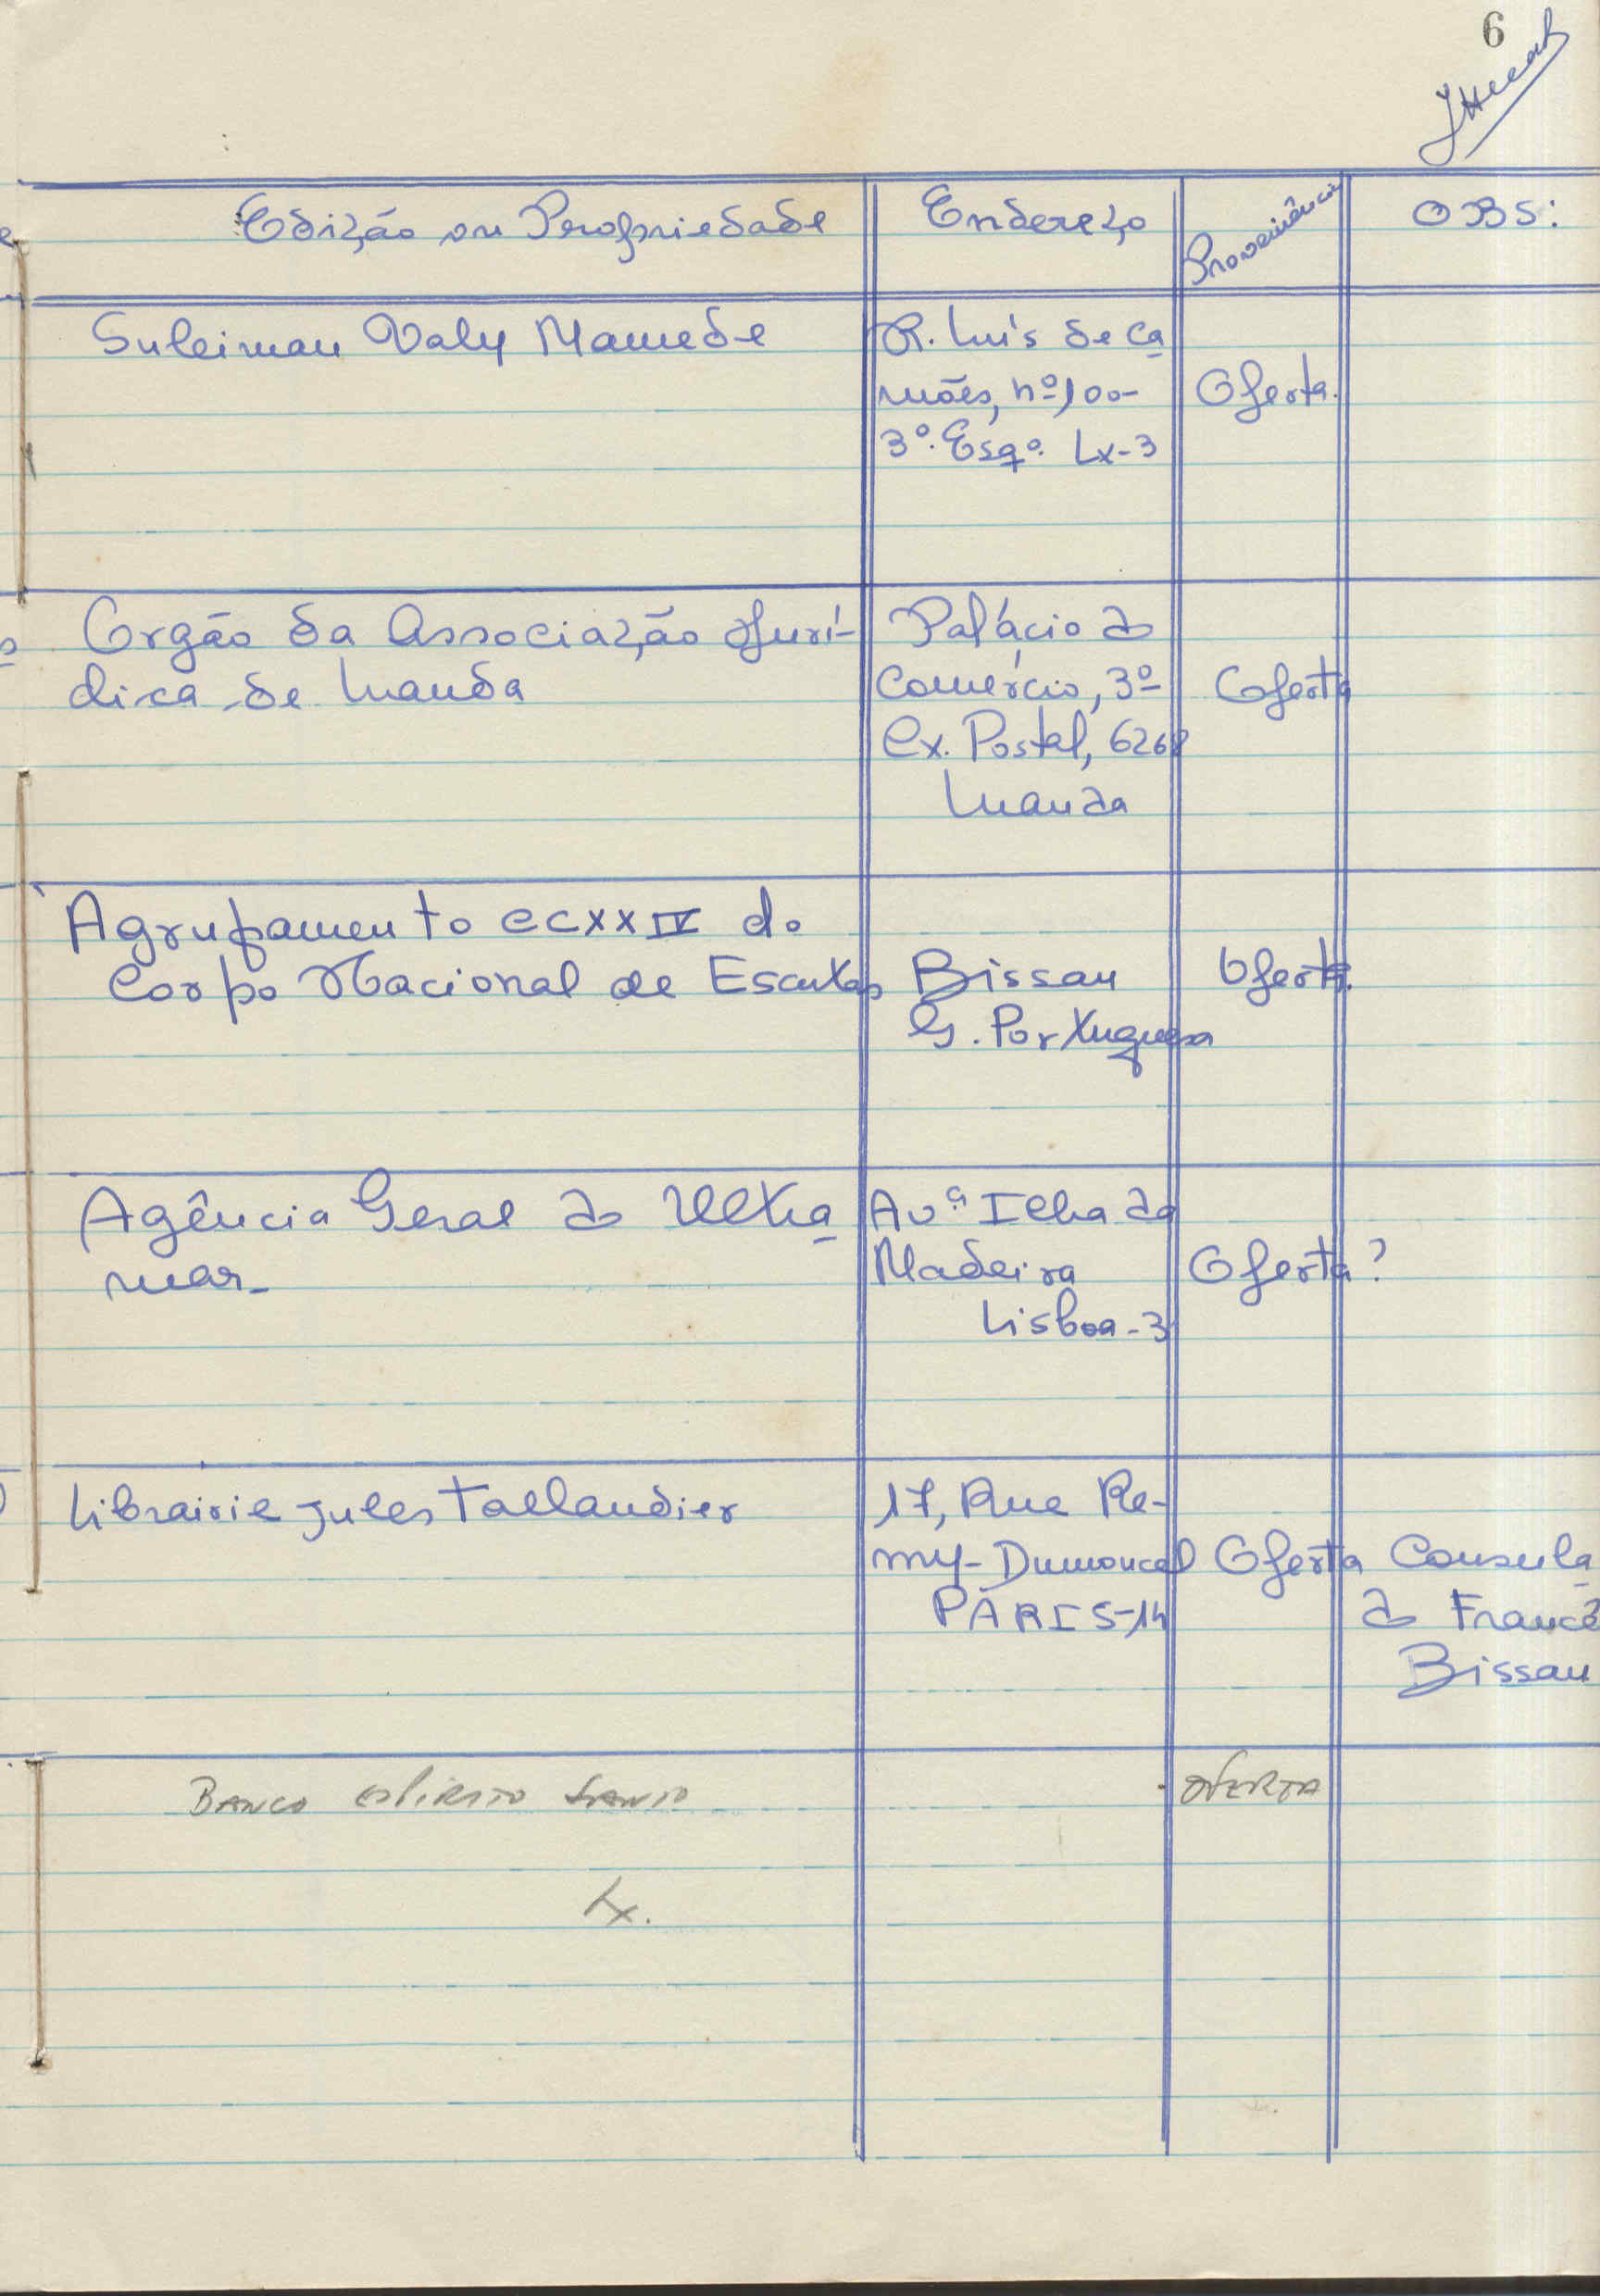 6
Edição ou Propriedade Endereço Proveniência OBS:
Suleiman Valy Mamede R. Luís de Ca
mões, nº 100- Oferta.
3º. Esqº. Lx-3
Orgão da Associação Jurí- Palácio do
dica de Luanda Comércio, 3º Oferta
Cx. Postal, 6268
Luanda
Agrupamento CCXXIV do
Corpo Nacional de Escutas Bissau Oferta
G. Portuguesa
Agência Geral do Ultra Avª Ilha da
mar- Madeira Oferta?
Lisboa-3
Librairie Jules Tallandier 17, Rue Re-
my-Dumoncel Oferta Consula
PARIS-14 do Francê
Bissau
BANCO ESPIRITO SANTO OFERTA
Lx.